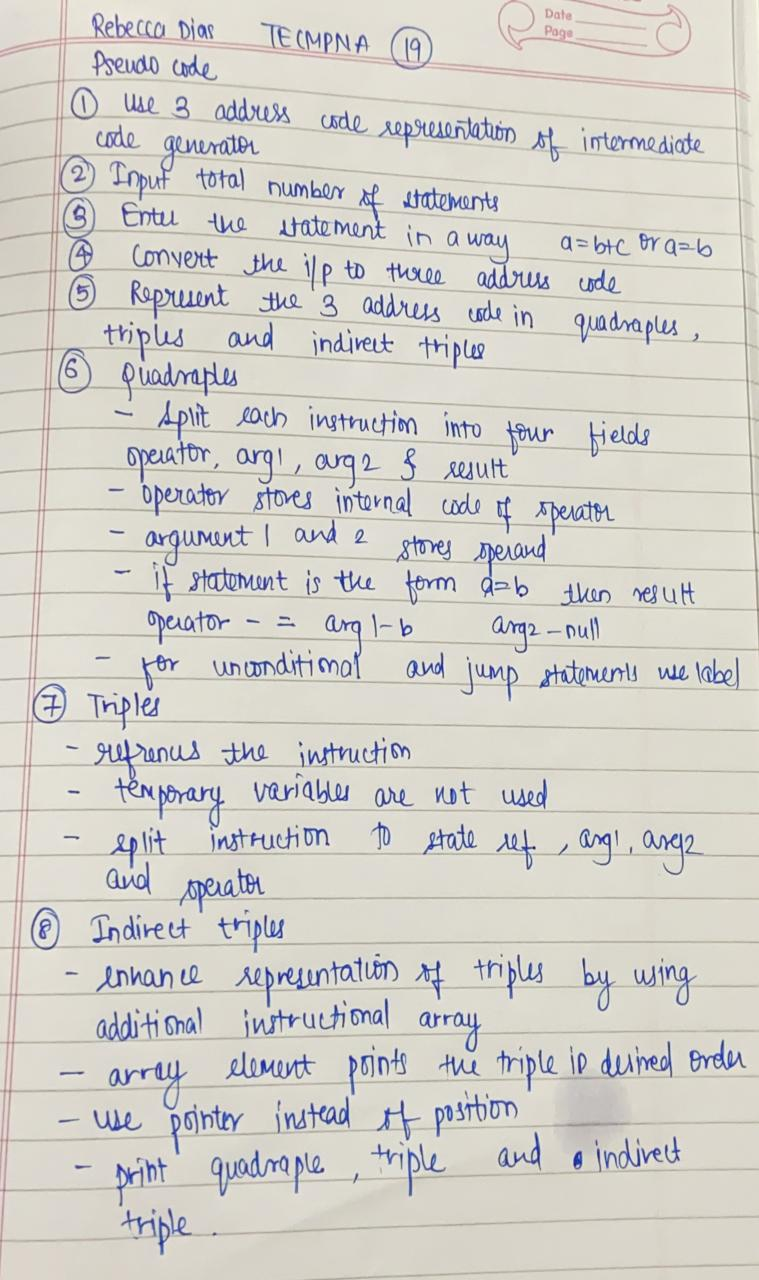 Date
Page
Rebecca Dias TECMPNA 19
Pseudo code
① Use 3 address code representation of intermediate
code generator
② Input total number of statements
③ Enter the statement in a way a=b+c or a=b
④ Convert the i/p to three address code
⑤ Represent the 3 address code in quadraples,
triples and indirect triples
⑥ Quadraples
- Split each instruction into four fields
operator, arg1, arg2 & result
- operator stores internal code of operator
- argument 1 and 2 stores operand
- if statement is the form a=b then result
operator - = arg1-b arg2-null
- for unconditional and jump statements use label
⑦ Triples
- refrenus the instruction
- temporary variables are not used
- split instruction to state ref, arg1, arg2
and operator
⑧ Indirect triples
- enhance representation of triples by using
additional instructional array
- array element points the triple in desired order
- use pointer instead of position
- print quadraple, triple and indirect
triple.